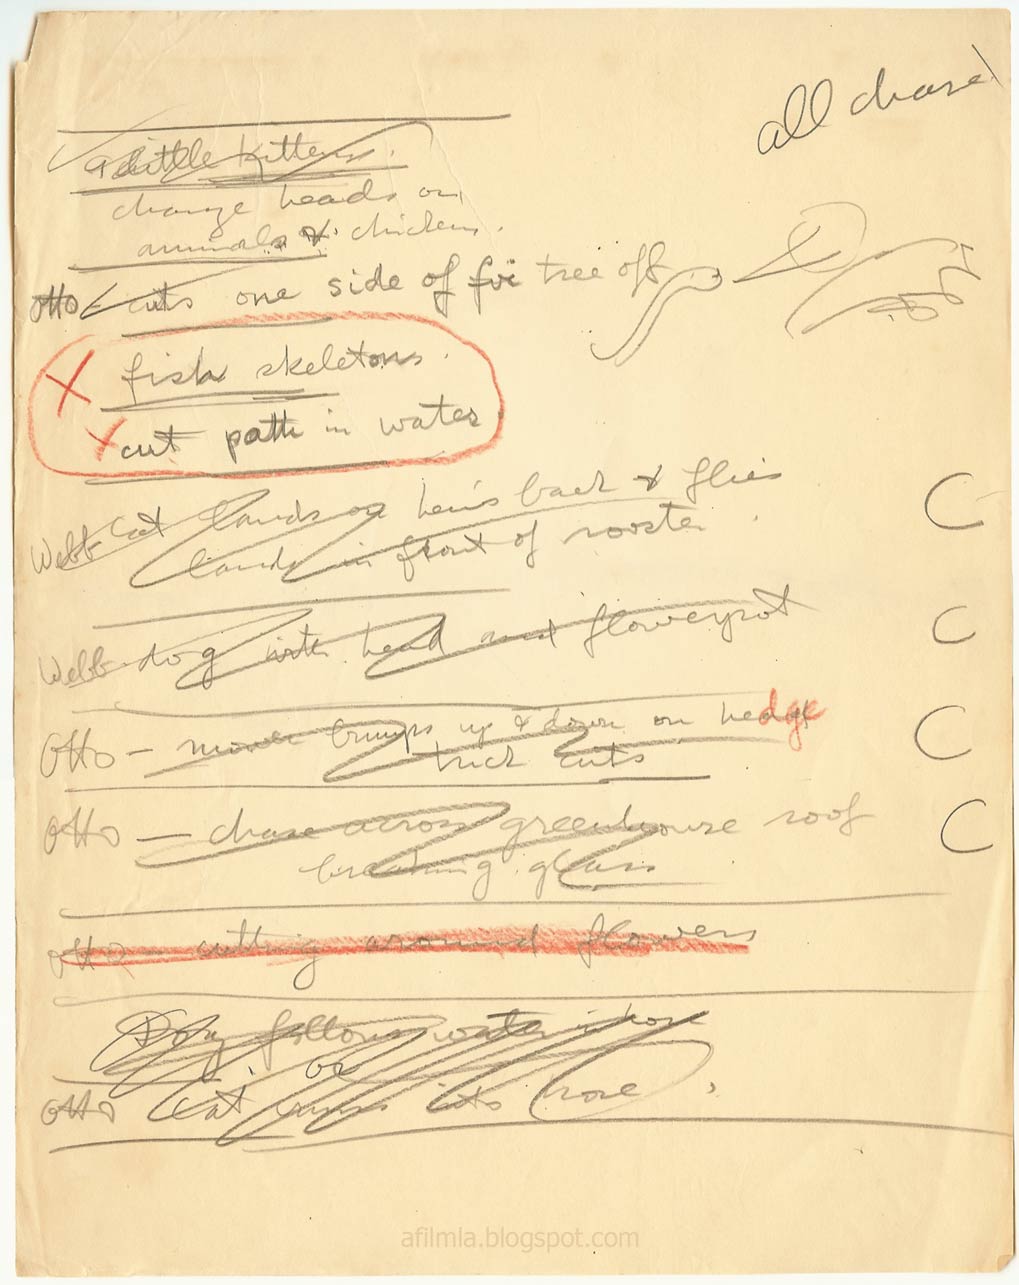 all chase
4 little kittens.
change heads on
animals & chickens.
Otto cuts one side of fir tree off
fish skeletons.
cut path in water
Webb cat lands on hen's back & flies
lands in front of rooster.
Webb dog with head and flowerpot
Otto – mower bumps up & down on hedge
trick cuts
Otto – chase across greenhouse roof
breaking glass
Otto – cutting around flowers
Dog follows water in hose
or
Otto cat runs into hose
afilmla.blogspot.com